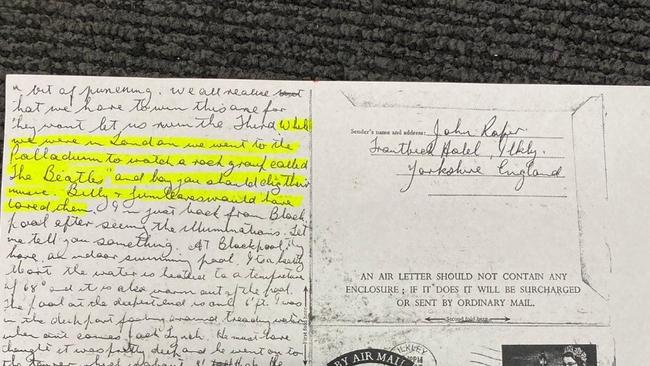 a bit of punching. We all realise
that we have to win this one for
they wont let us win the Third While
we were in London we went to the
Palladium to watch a rock group called
"The Beatles" and boy you should dig their
music. Billy + would have
loved them. I'm just back from Black
pool after seeing the illuminations. Let
me tell you something. At Blackpool they
have an indoor swimming pool. Its a beauty
the water is heated to a temperature
of 68° and it is also warm out of the pool.
The pool at the deep end is only 6 ft. I was
in the deep part treading water
when in comes Jack Lynch. He must have
thought it was pretty deep and he went on to
the
Sender's name and address: John Raper
Hotel, Ilkley.
Yorkshire England
AN AIR LETTER SHOULD NOT CONTAIN ANY
ENCLOSURE ; IF IT DOES IT WILL BE SURCHARGED
OR SENT BY ORDINARY MAIL.
Second fold here
First fold here
BY AIR MAIL
ILKLEY